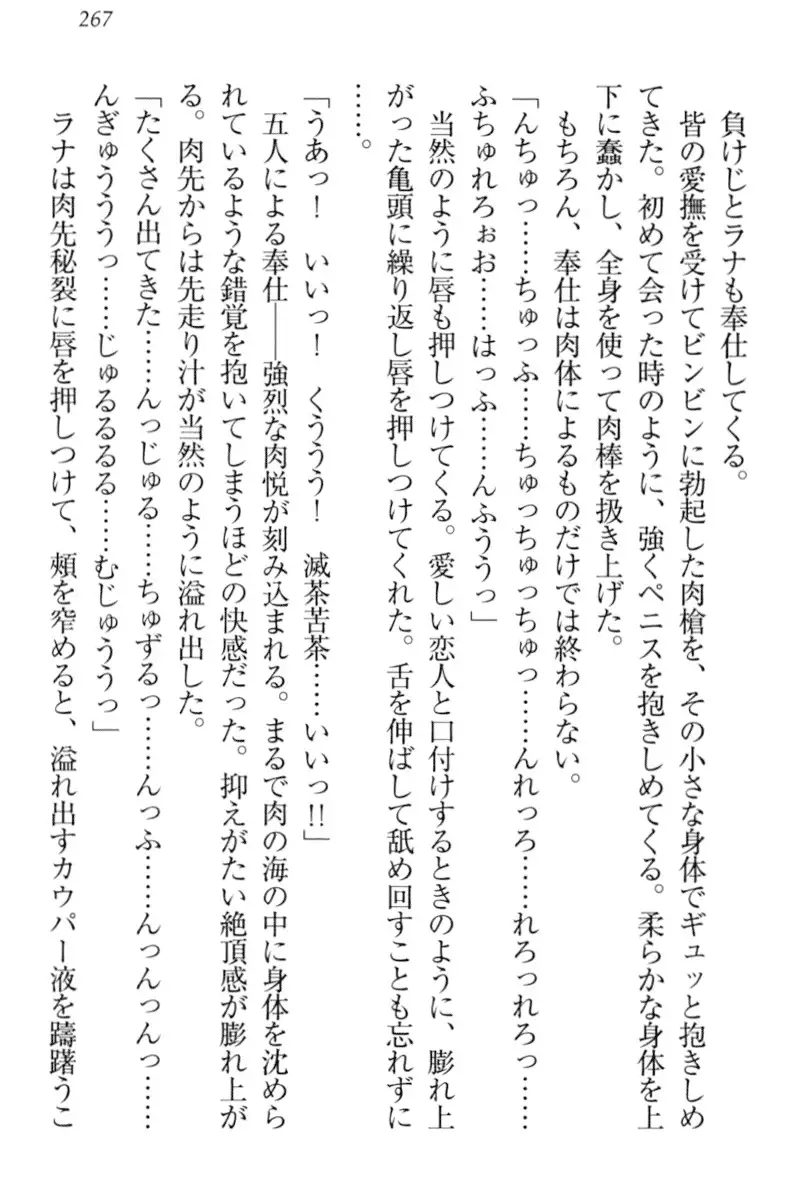 267
負けじとラナも奉仕してくる。
皆の愛撫を受けてビンビンに勃起した肉槍を、その小さな身体でギュッと抱きしめ
てきた。初めて会った時のように、強くペニスを抱きしめてくる。柔らかな身体を上
下に蠢かし、全身を使って肉棒を扱き上げた。
もちろん、奉仕は肉体によるものだけでは終わらない。
「んちゅっ……ちゅっふ……ちゅっちゅっちゅっ……んれっろ……れろっれろっ……
ふちゅれろぉお……はっふ……んふううっ」
当然のように唇も押しつけてくる。愛しい恋人と口付けするときのように、膨れ上
がった亀頭に繰り返し唇を押しつけてくれた。舌を伸ばして舐め回すことも忘れずに
……。
「うあっ！　いいっ！　くううう！　滅茶苦茶……いいっ!!」
五人による奉仕――強烈な肉悦が刻み込まれる。まるで肉の海の中に身体を沈めら
れているような錯覚を抱いてしまうほどの快感だった。抑えがたい絶頂感が膨れ上が
る。肉先からは先走り汁が当然のように溢れ出した。
「たくさん出てきた……んっじゅる……ちゅずるっ……んっふ……んっんっんっ……
んぎゅうううっ……じゅるるるる……むじゅううっ」
ラナは肉先秘裂に唇を押しつけて、頰を窄めると、溢れ出すカウパー液を躊躇うこ